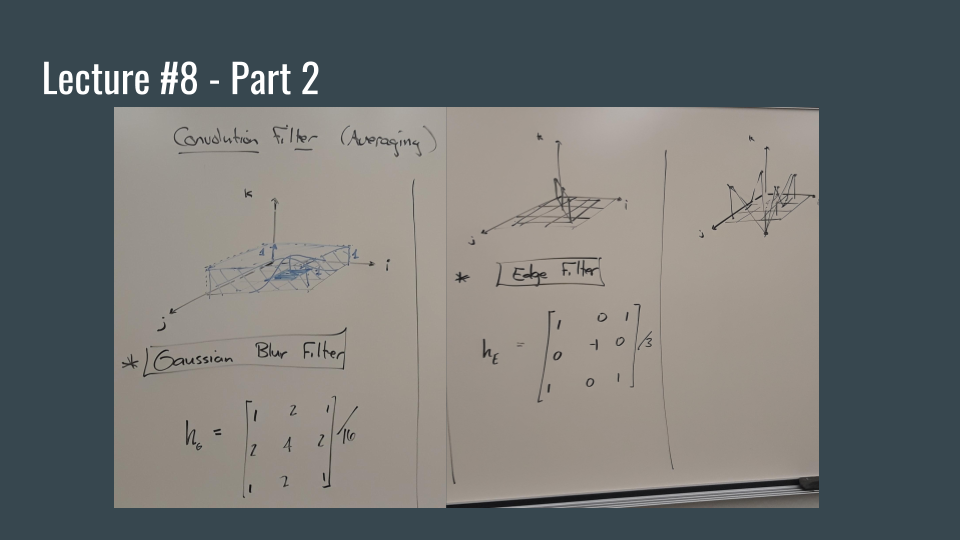 Lecture #8 - Part 2
Convolution Filter (Averaging)
k
1 1
i
j
* Gaussian Blur Filter
h_G = [1 2 1
2 4 2
1 2 1] /16
k
i
j
* Edge Filter
h_E = [1 0 1
0 -1 0
1 0 1] /3
k
j